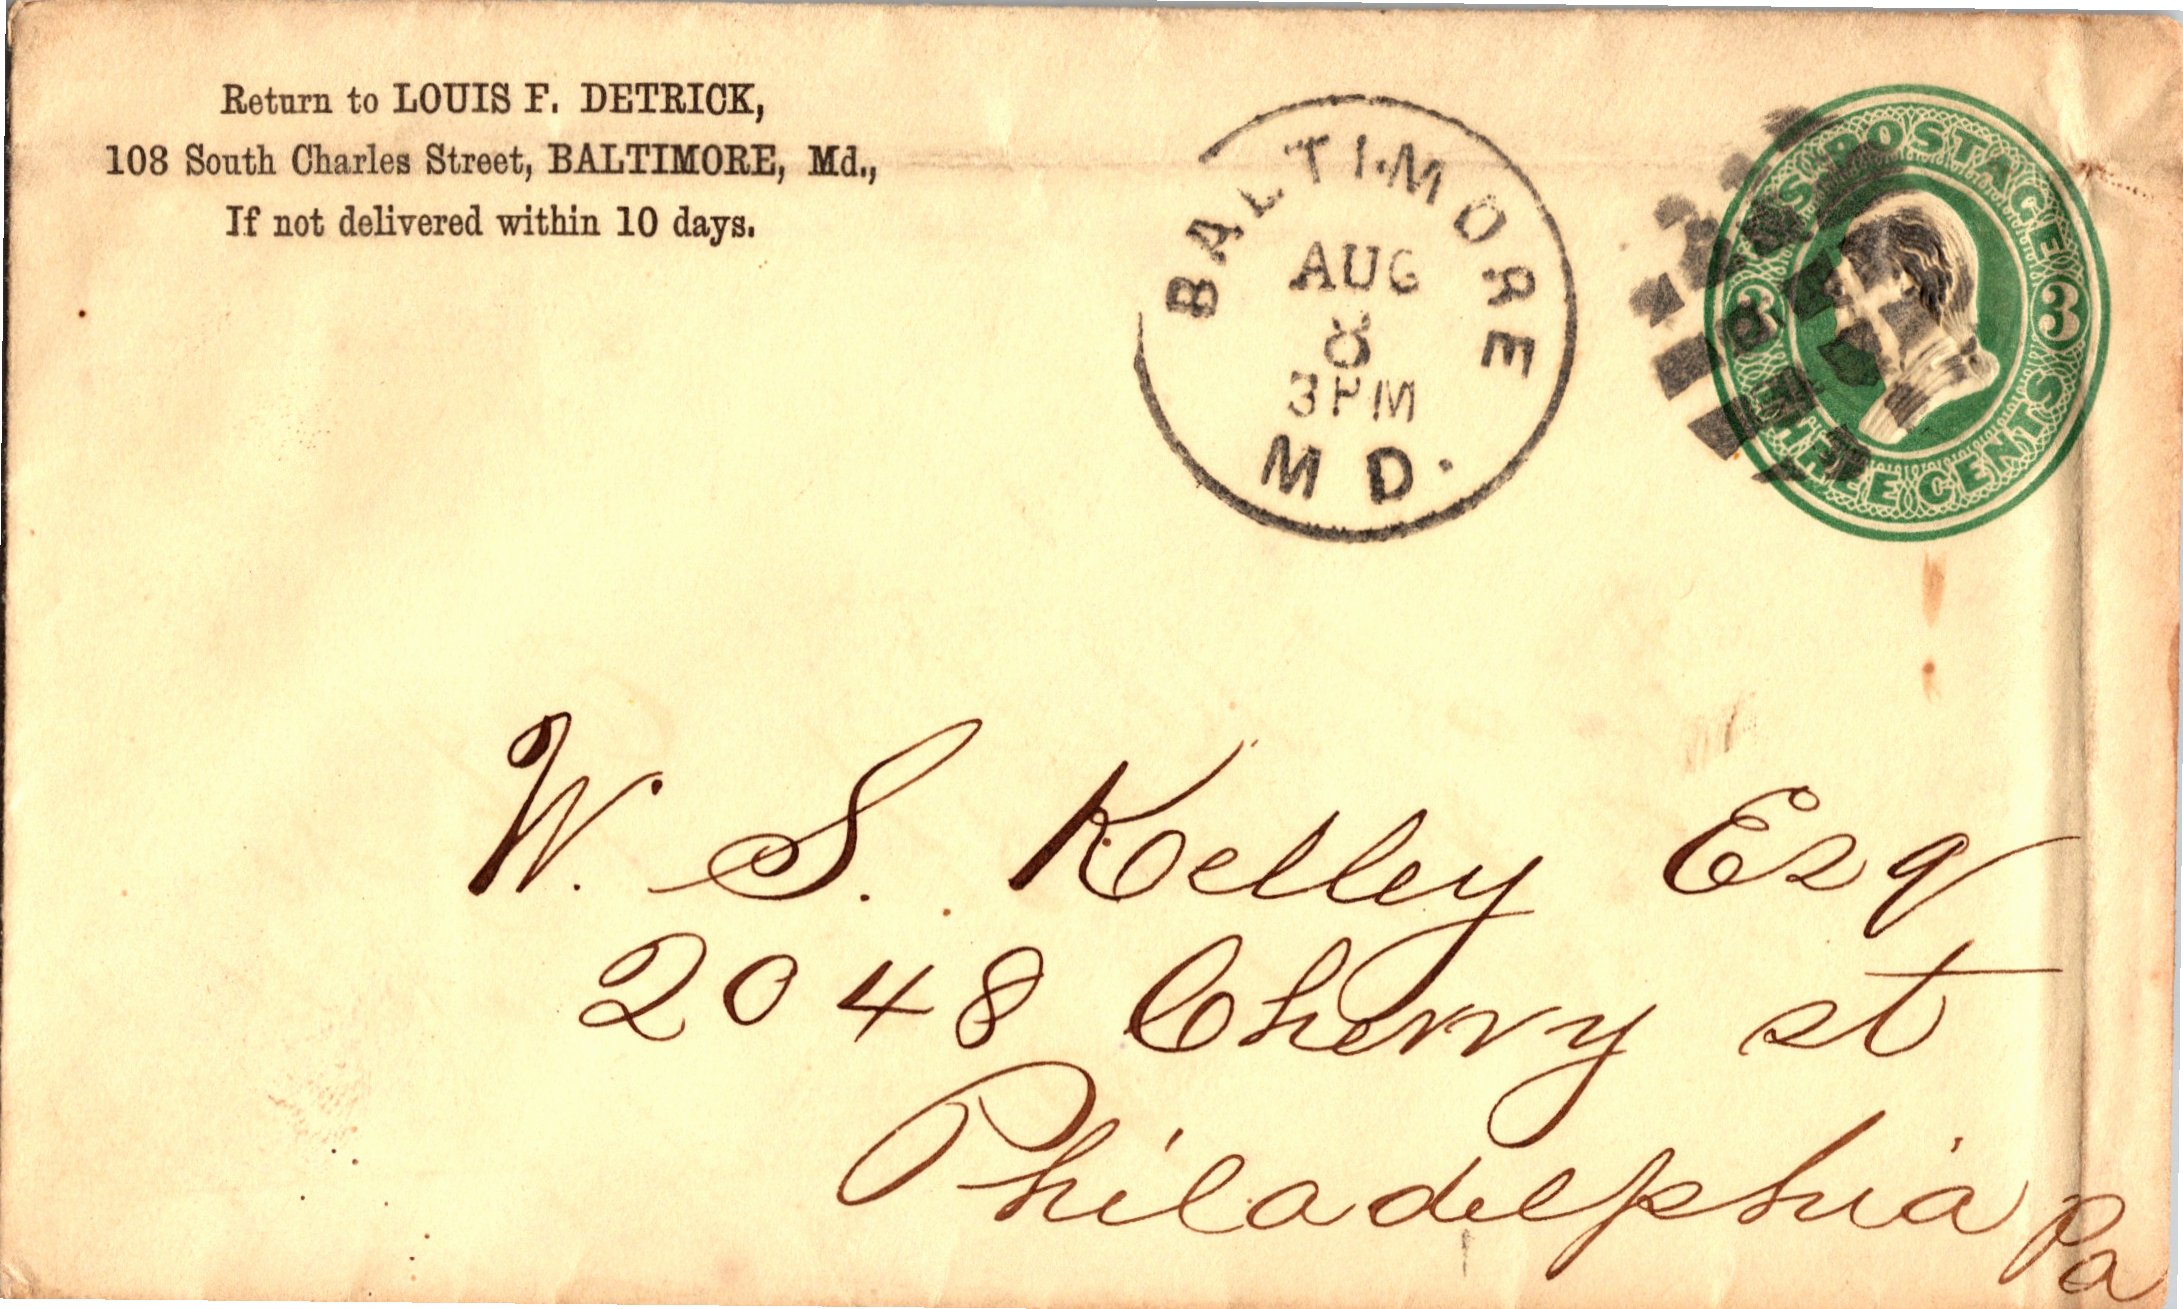 Return to LOUIS F. DETRICK,
108 South Charles Street, BALTIMORE, Md.,
If not delivered within 10 days.
BALTIMORE
AUG
8
3 PM
MD.
U.S. POSTAGE
3 3
THREE CENTS
W. S. Kelley Esq
2048 Cherry st
Philadelphia Pa